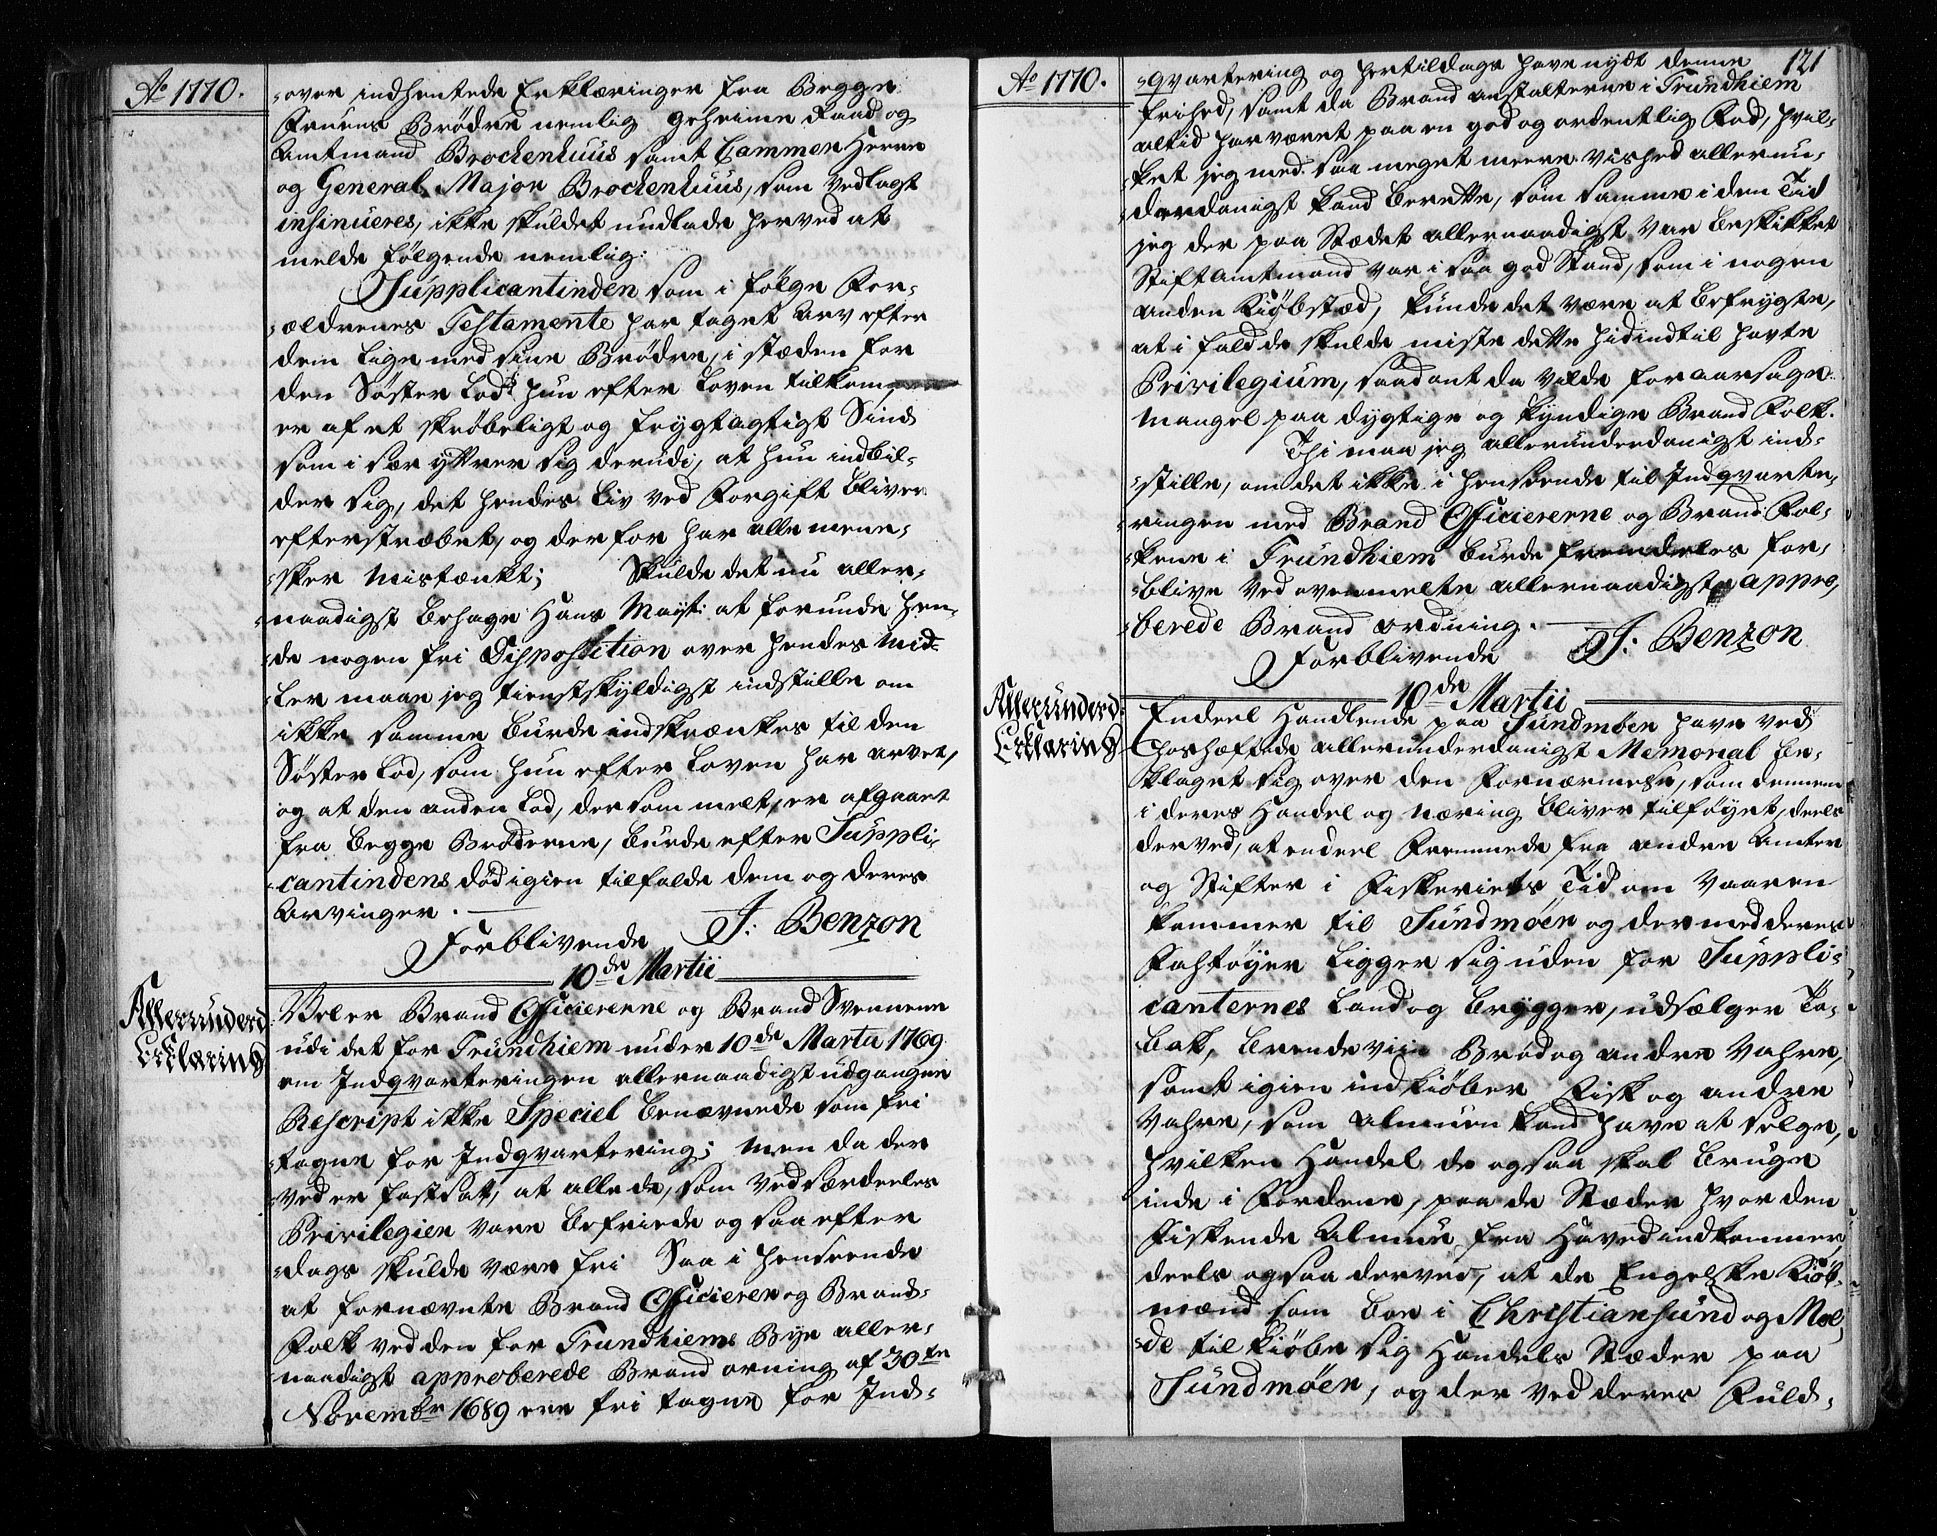 Ao 1770.
-over indhentede Erklæringer fra Begge
Fruens Brødre nemlig Geheime Raad og
Amtmand Brockenhuus samt Cammer Herre
og General Major Brockenhuus, som vedlagt
insinueres, ikke skuldet undlade herved at
melde følgende nemlig:
Supplicantinden som i følge For-
-ældrenes Testamente har taget Arv efter
dem lige med sine Brødre, i stæden for
den Søster Lod, hun efter Loven tilkom,
er af et skrøbeligt og frygtagtigt Sind
som i sær yttrer sig derudi, at hun indbil-
der sig, det hendes Liv ved Forgift bliver
efterstræbet, og derfor har alle menne-
-sker mistænkt; Skulde det nu aller-
-naadigst behage Hans Mayt: at forunde hen-
-de nogen fri Disposition over hendes Mid-
-ler maae jeg tienstskyldigst indstille om
ikke samme burde indskrænkes til den
Søster Lod, som hun efter Loven har arvet,
og at den anden Lod, der som melt, er afgaaet
fra begge Brødrene, burde efter Suppli-
-cantindens død igien tilfalde dem og deres
Arvinger.
Forblivende J: Benzon
10de Martii
Allerunderd:
Erklaring
Vel er Brand Officiererne og Brand Svennene
udi det for Trundhiem under 10de Martii 1769
om Indqvarteringen allernaadigst udgangne
Rescript ikke Speciel benævnede som fri
-tagne for Indqvartering; men da der
ved er fastsat, at alle de, som ved særdeeles
Privilegier vare befriede og saa efter
-dags skulde være fri Saa i henseende
at fornævnte Brand Officierer og Brand-
Folk ved den for Trundhiems Bye aller-
naadigst approberede Brand orning af 30te
Novembr 1689 ere fri tagne for Ind-
Ao 1770.
121
-qvartering og hertildags have nydt denne
frihed, samt da Brand anstalterne i Trundhiem
altid har været paa en god og ordentlig Fod, hvil-
-ket jeg med saa meget meere vished allerun-
-derdanigst kand berette, som samme i den Tiid
jeg der paa Stædet allernaadigst var beskikket
Stiftamtmand var i saa god Stand, som i nogen
anden Kiøbstæd, kunde det være at befrygte,
at i fald de skulde miste dette hidindtil havte
Privilegium, saadant da vilde foraarsage
Mangel paa dygtige og kyndige Brand Folk.
Thi maa jeg allerunderdanigst ind-
-stille, om det ikke i henseende til Indqvarte-
-ringen med Brand Officiererne og Brand Fol-
-kene i Trundhiem burde fremdeeles for-
-blive ved ovenmelte allernaadigst appro-
-berede Brand ordning.
Forblivende J: Benzon
10de Martii
Allerunderd:
Erklaring
Endeel Handlende paa Sundmøer have ved
hoshæftede allerunderdanigst Memorial be-
klaget sig over den Fornærmelse, som dennem
i deres Handel og Næring bliver tilføyet, deels
derved, at endeel Fremmede fra andre Amter
og Stifter i Fiskeriets Tid om Vaaren
kommer til Sundmøer og der med deres
Fahrtøyer ligger sig uden for Suppli-
canternes Land og Brygger, udsælger To-
bak, Brendeviin Brød og andre Vahre,
samt igien indkiøber Fisk og andre
Vahre, som Almuen kand have at selge,
hvilken Handel de ogsaa skal bruge
inde i Fiordene, paa de Stæder hvor den
Fiskende Almue fra Havet indkommer,
deels ogsaa derved, at de Engelske Kiøb-
mænd som boe i Christiansund og Mol-
-de til kiøbe sig Handels Stæder paa
Sundmøer, og der ved deres Fuld-